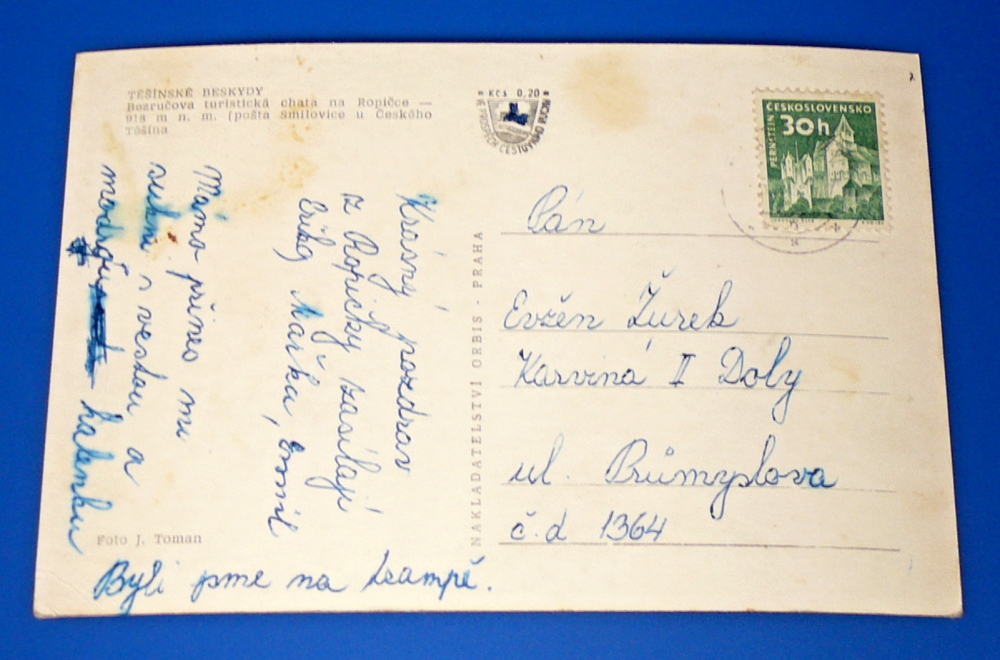 TĚŠÍNSKÉ BESKYDY
Bezručova turistická chata na Ropičce —
918 m n. m. (pošta Smilovice u Českého
Těšína
Kčs 0,20
VE PROSPĚCH CESTOVNÍHO RUCHU
ČESKOSLOVENSKO
PERNŠTEJN
30h
Krásný pozdrav
z Ropičky zasílají
Erika, Mařka, Emil
Mámo přines mi
sukni s vestou a
modrou
halenku
Byli sme na tsampě.
Foto J. Toman
NAKLADATELSTVÍ ORBIS - PRAHA
Pán
Evžén Žurek
Karviná II Doly
ul. Průmyslova
č.d 1364